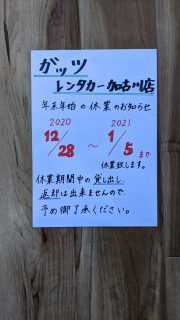 ガッツ
レンタカー加古川店
年末年始の休業のお知らせ
2020 2021
12/28 ～ 1/5 まで
休業致します。
休業期間中の貸し出し、
返却は出来ませんので、
予め御了承ください。